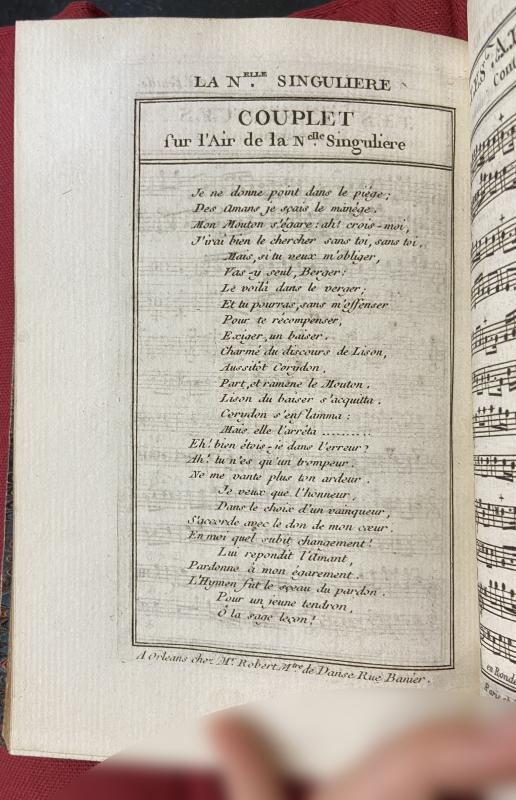 LA N.ELLE SINGULIERE
COUPLET
sur l'Air de la N.elle Singuliere
Je ne donne point dans le piége;
Des Amans je sçais le manége.
Mon Mouton s'égare: ah! crois-moi,
J'irai bien le chercher sans toi, sans toi.
Mais, si tu veux m'obliger,
Vas-y seul, Berger:
Le voilà dans le verger;
Et tu pourras, sans m'offenser
Pour te récompenser,
Exiger, un baiser.
Charmé du discours de Lison,
Aussitôt Corydon,
Part, et raméne le Mouton.
Lison du baiser s'acquitta.
Corydon s'enflamma:
Mais elle l'arréta ..........
Eh! bien étois-je dans l'erreur?
Ah! tu n'es qu'un trompeur.
Ne me vante plus ton ardeur.
Je veux que l'honneur,
Dans le choix d'un vainqueur,
S'accorde avec le don de mon cœur.
En moi quel subit changement!
Lui repondit l'Amant,
Pardonne à mon égarement.
L'Hymen fut le sçeau du pardon.
Pour un jeune tendron,
O la sage leçon!
A Orleans chez Mr. Robert Mtre de Danse Rue Banier.
en Ronde
Paris